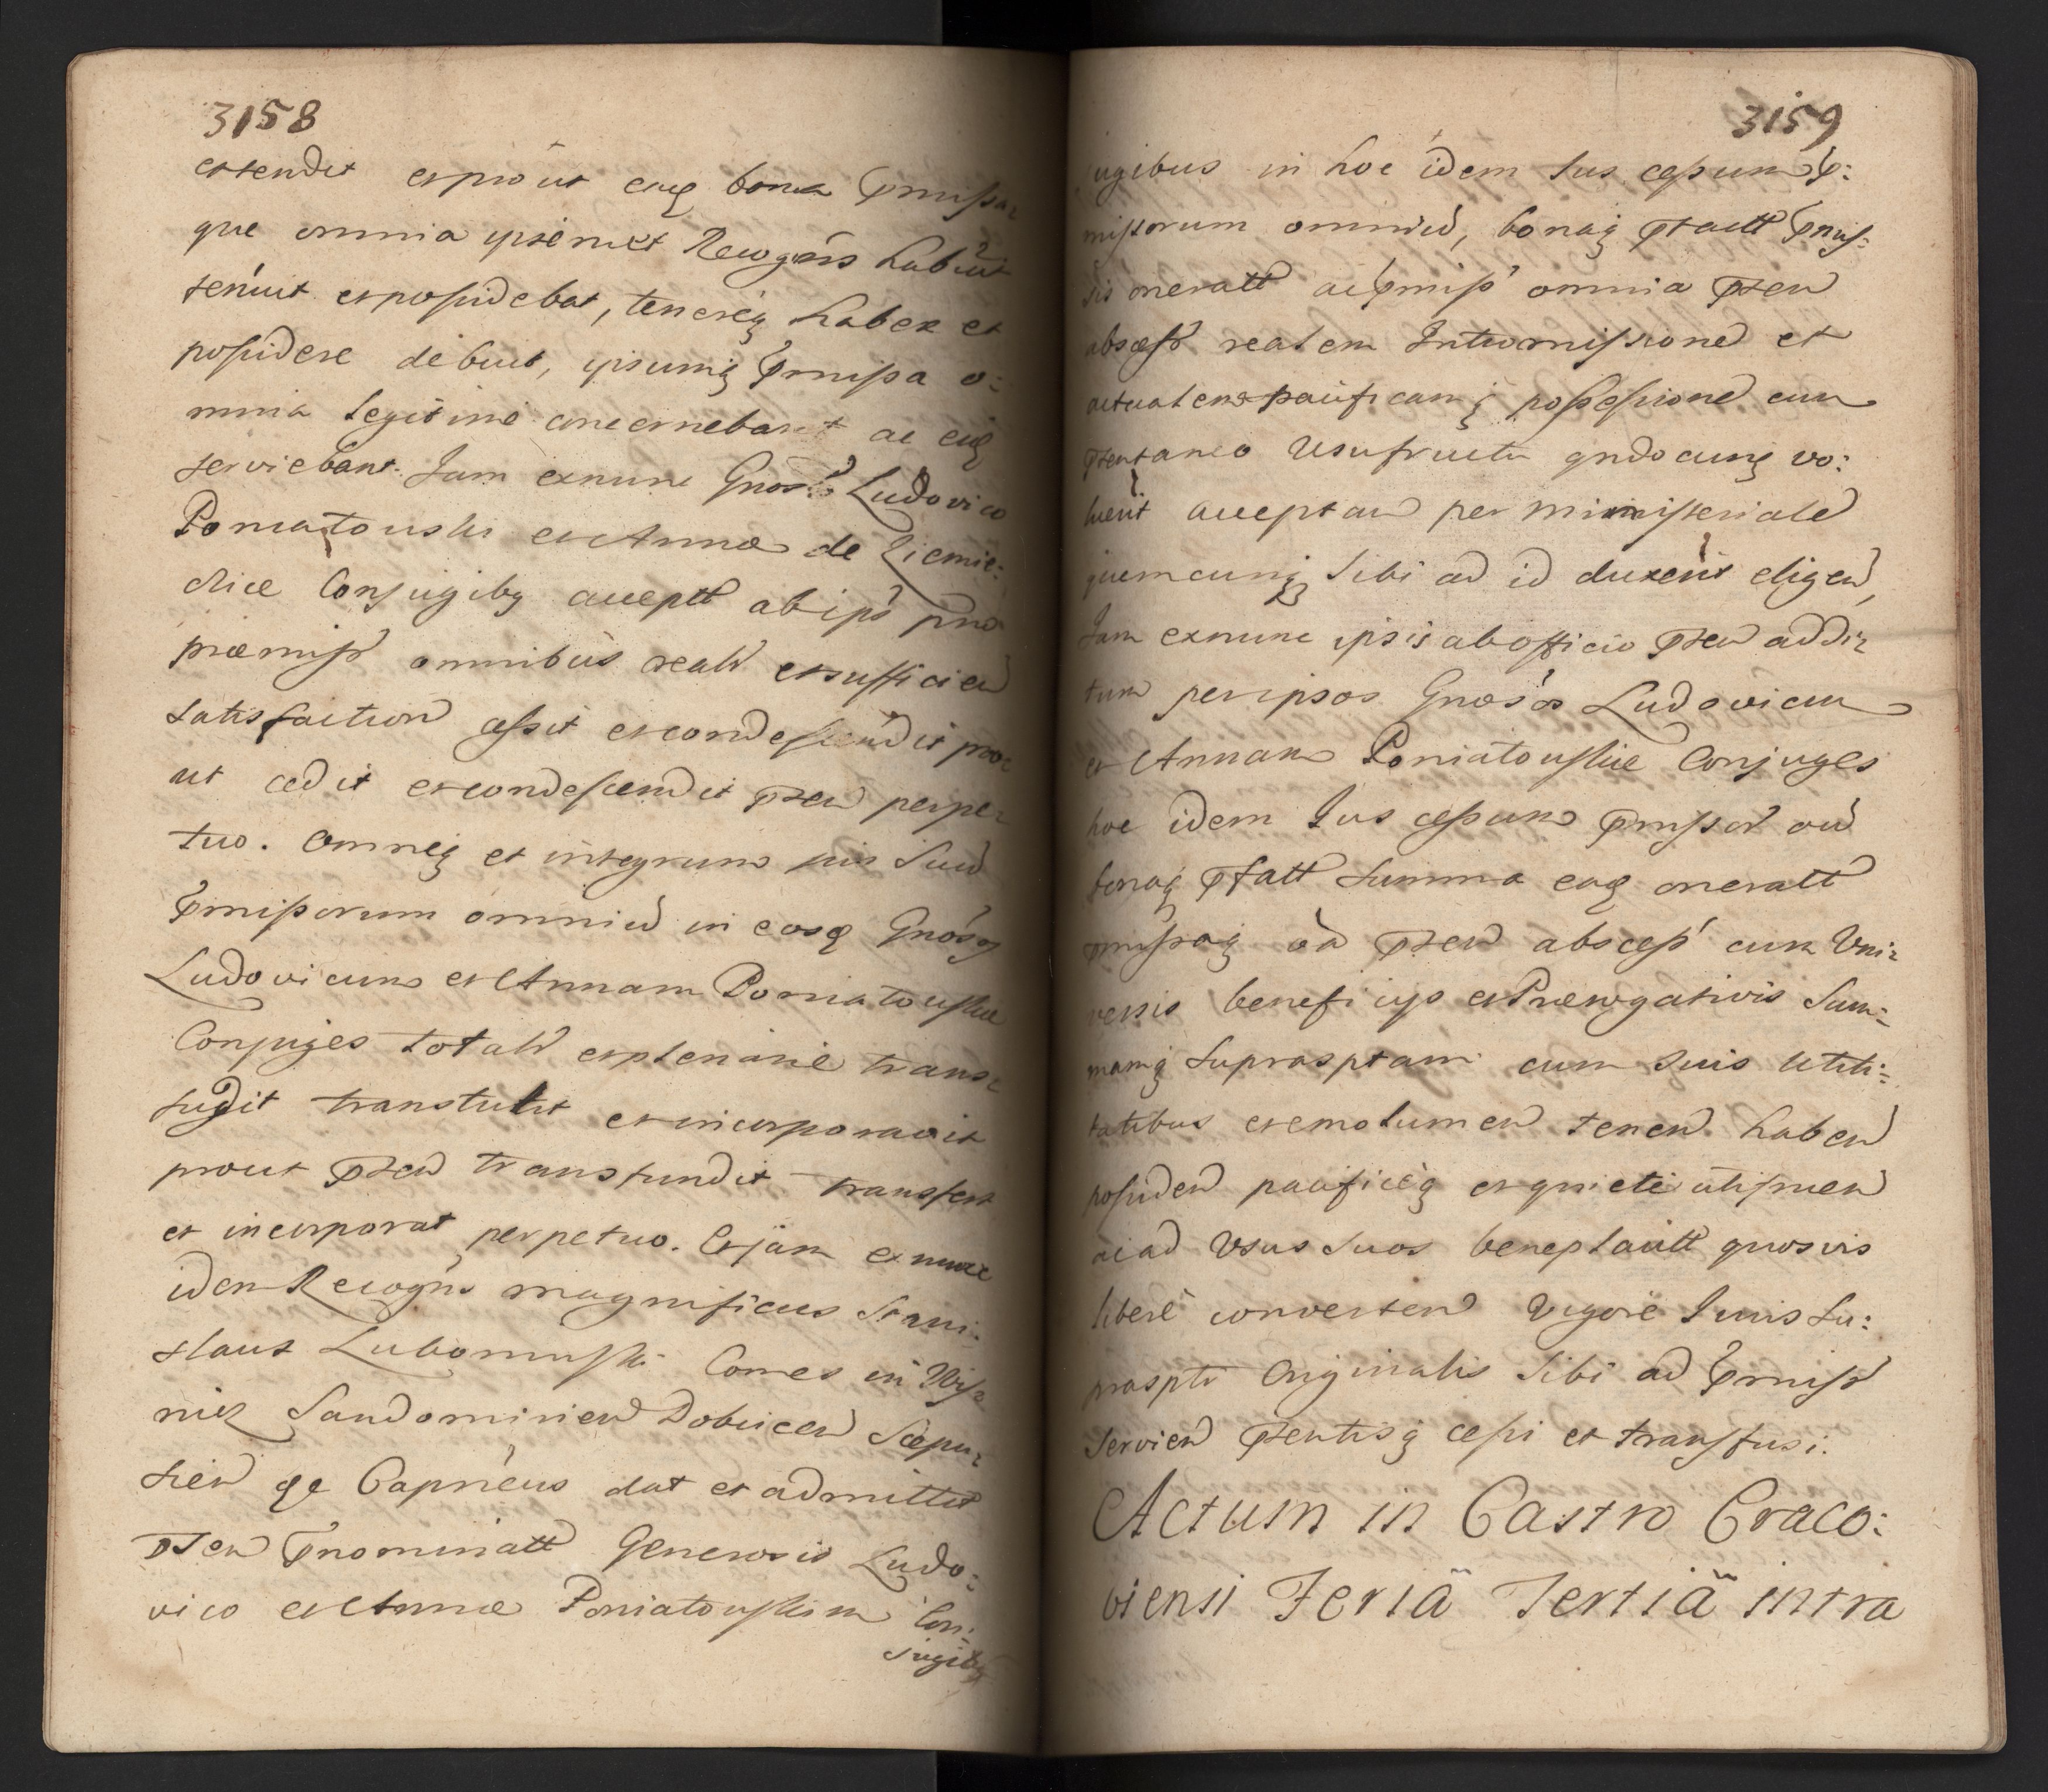 3158
extendit et prout eaq bona Pmissa
que omnia ipsemet Recogns habuit
tenuit et possidebat, tenereq habere et
possidere debuit, ipsumq Pmissa o:
mnia legitime concernebant ac eiq
serviebant. Jam exnunc Gnosis Ludovico
Poniatouski et Annæ de Ziemie:
Conjugibq accept ab ips
præmiss omnibus reali et sufficien
satisfaction cessit et condescendit pro:
ut cedit et condescendit pten perpe:
tuo. Omneq et integrum jus suu
Pmissorum omniu in eosq Gnosos
Ludovicum et Annam Poniatouskie
Conjuges totali et plenarie trans:
fudit transtulit et incorporavit
prout pten transfundit transfert
et incorporat perpetuo. Et jam exnunc
idem Recogns magnificus Stani:
slaus Lubomirski Comes in Wis:
nicz Sandomirien Dobricen Scepu:
sien qe Capneus dat et admittit
pten Pnominatt Generosis Ludo:
vico et Annæ Poniatouskim Con:
jugibq
3159
jugibus in hoc idem Jus cessum P:
missorum omniu, bonaq pfactt Pmis:
sis oneratt ac Pmiss omnia pten
abscess realem Intromissione et
actualem pacificamq possessione cum
ptentaneo Usufructu qndocunq vo:
luerit acceptan per ministeriale
quemcunq sibi ad id duxerit eligen,
Jam exnunc ipsis ab officio pten addi:
tum per ipsos Gnosos Ludovicum
et Annam Poniatouskie Conjuges
hoc idem Jus cessum Pmissor
bonaq pfatt summa eaq oneratt
pmissaq oa pten abscess cum Vni:
versis beneficijs et Prærogativis Sum:
mamq supransptam cum suis Utili:
tatibus et emolumen tenen haben
possiden pacificeq et quiete utifruen
ac ad Vsus suos beneplacitt quosvis
libere converten Vigore Juris su:
praspti Originalis sibi ad Pmiss
servien ptentisq cessi et transfusi.
Actum in Castro Craco:
viensi Feriâ Tertiâ intra